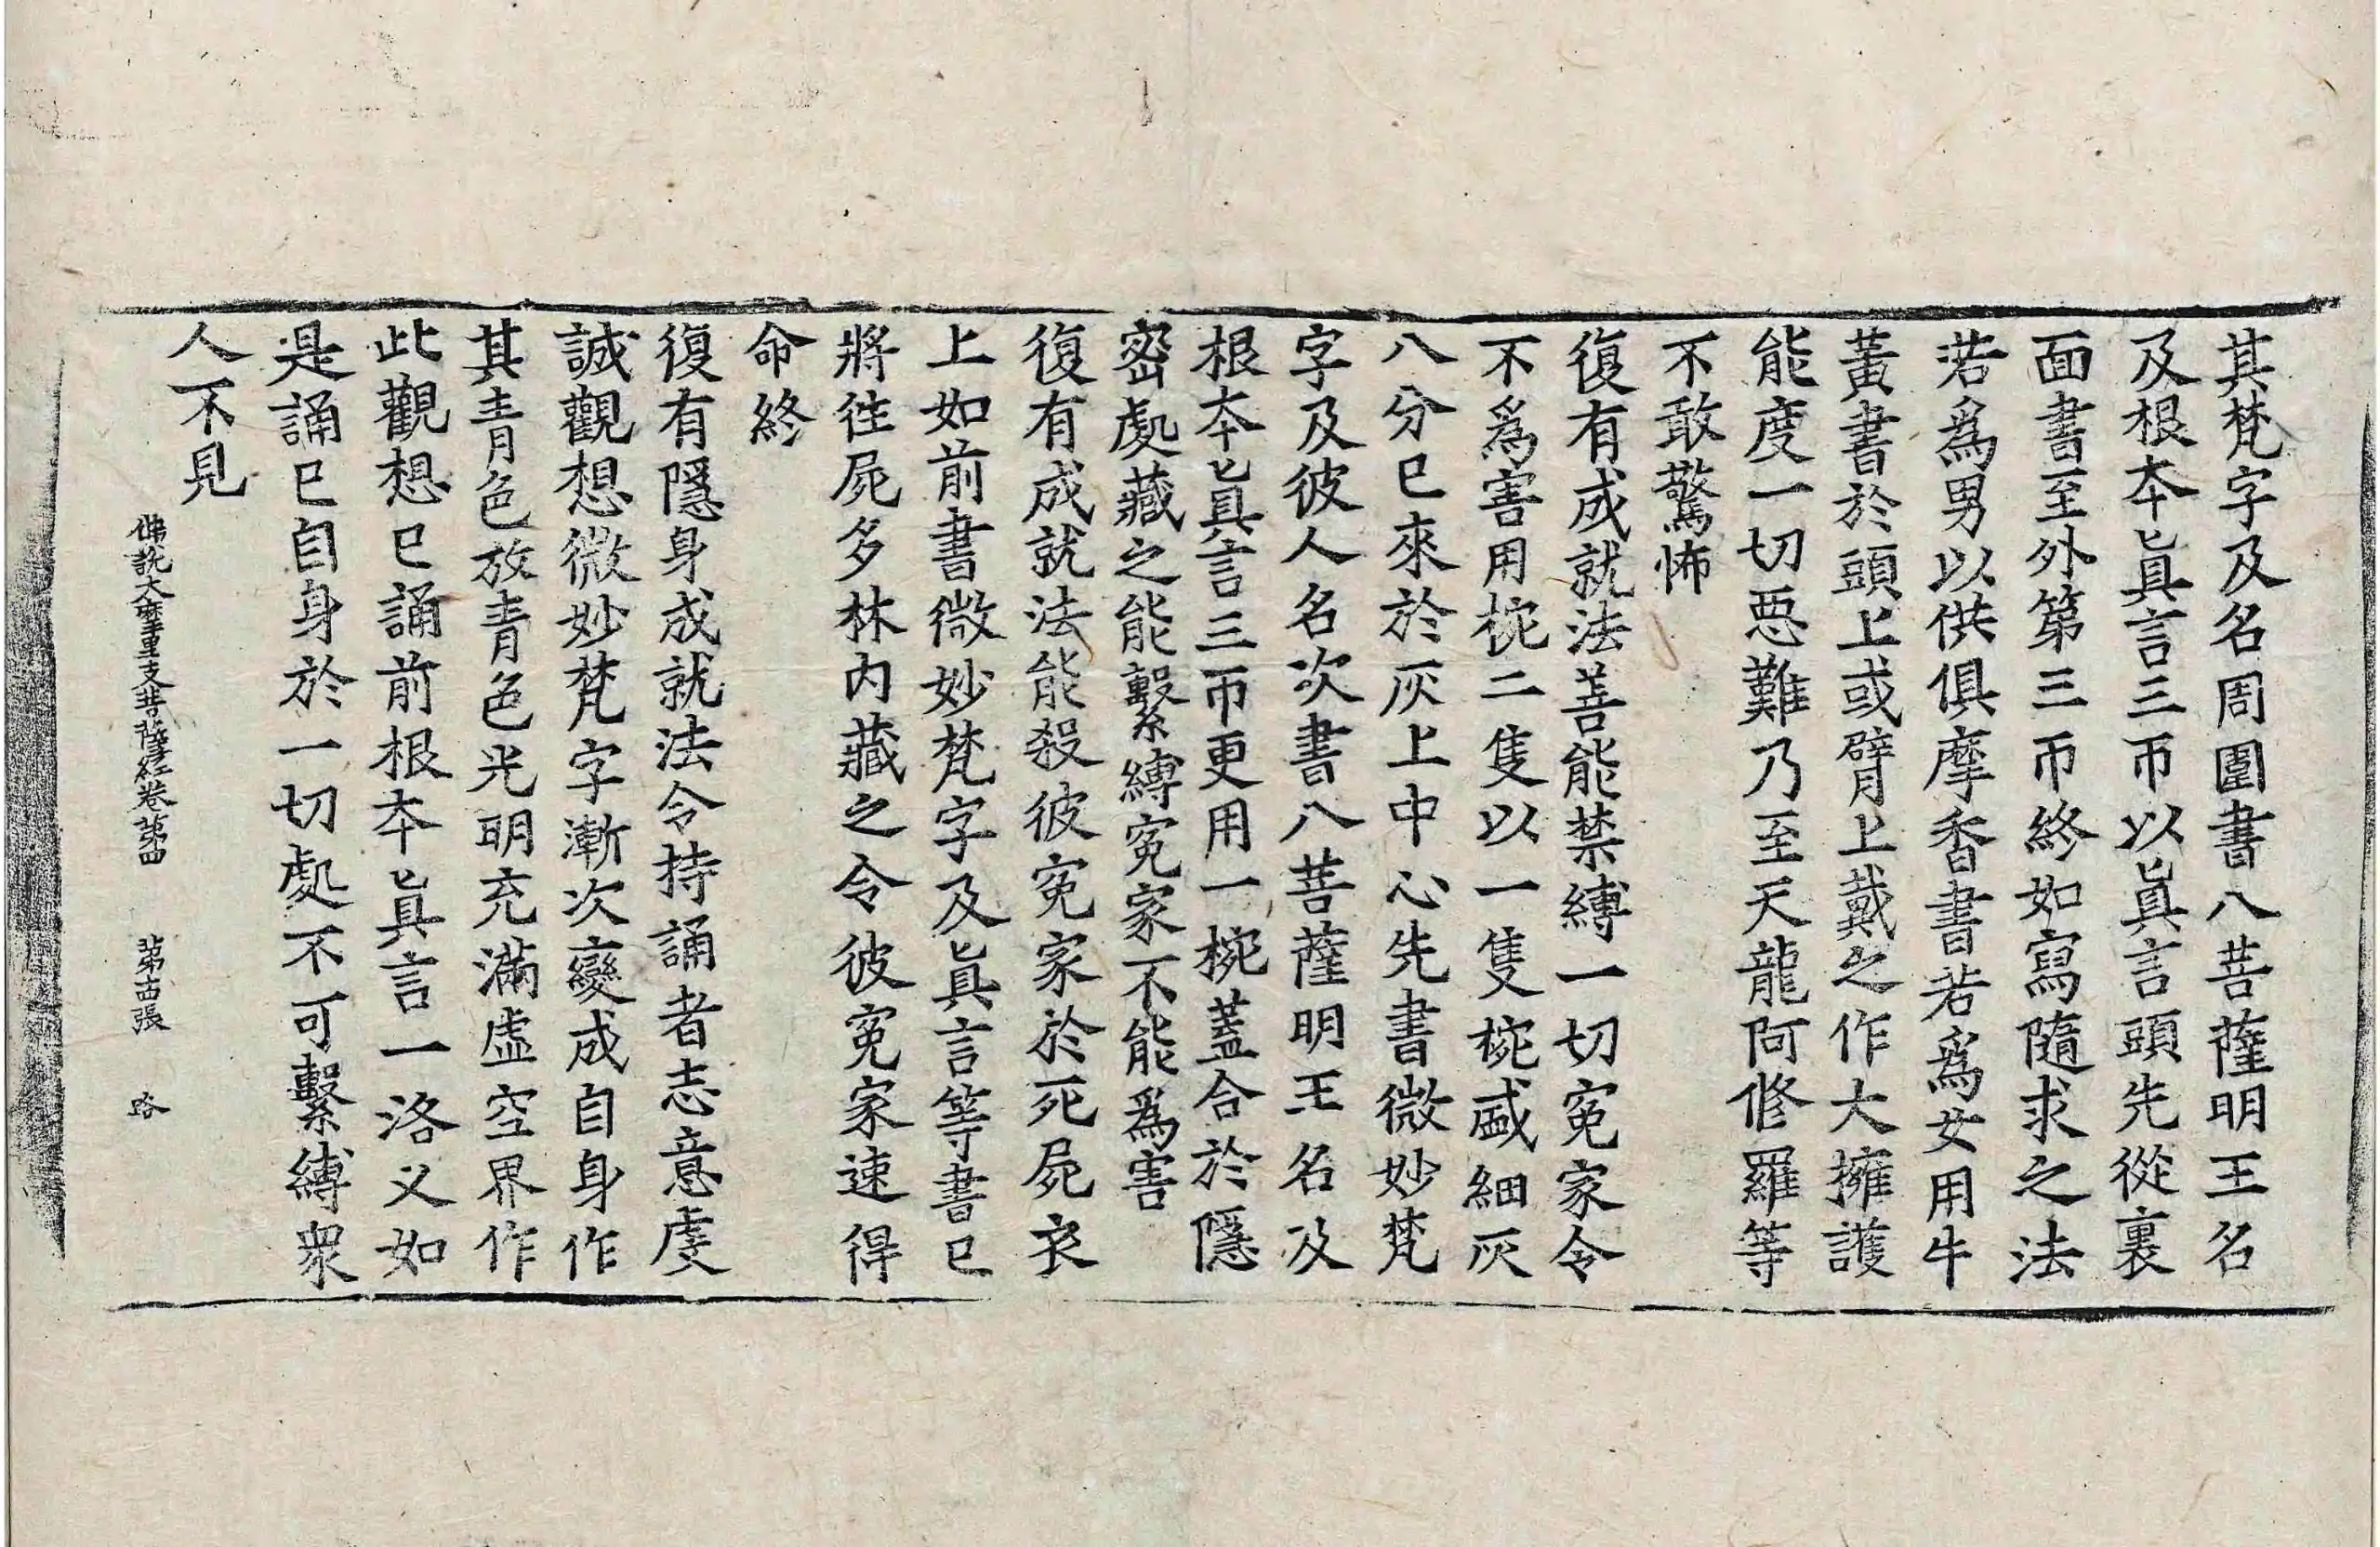 其梵字及名周圍書八菩薩明王名
及根本眞言三帀以眞言頭先從裏
面書至外第三帀終如寫隨求之法
若爲男以供俱摩香書若爲女用牛
黃書於頭上或臂上戴之作大擁護
能度一切惡難乃至天龍阿修羅等
不敢驚怖
復有成就法善能禁縛一切寃家令
不爲害用椀二隻以一隻椀盛細灰
八分已來於灰上中心先書微妙梵
字及彼人名次書八菩薩明王名及
根本眞言三帀更用一椀蓋合於隱
密處藏之能繫縛寃家不能爲害
復有成就法能殺彼寃家於死屍衣
上如前書微妙梵字及眞言等書已
將往屍多林內藏之令彼寃家速得
命終
復有隱身成就法令持誦者志意虔
誠觀想微妙梵字漸次變成自身作
其青色放青色光明充滿虛空界作
此觀想已誦前根本眞言一洛叉如
是誦已自身於一切處不可繫縛衆
人不見
佛說大摩里支菩薩經卷第四 第古張 路